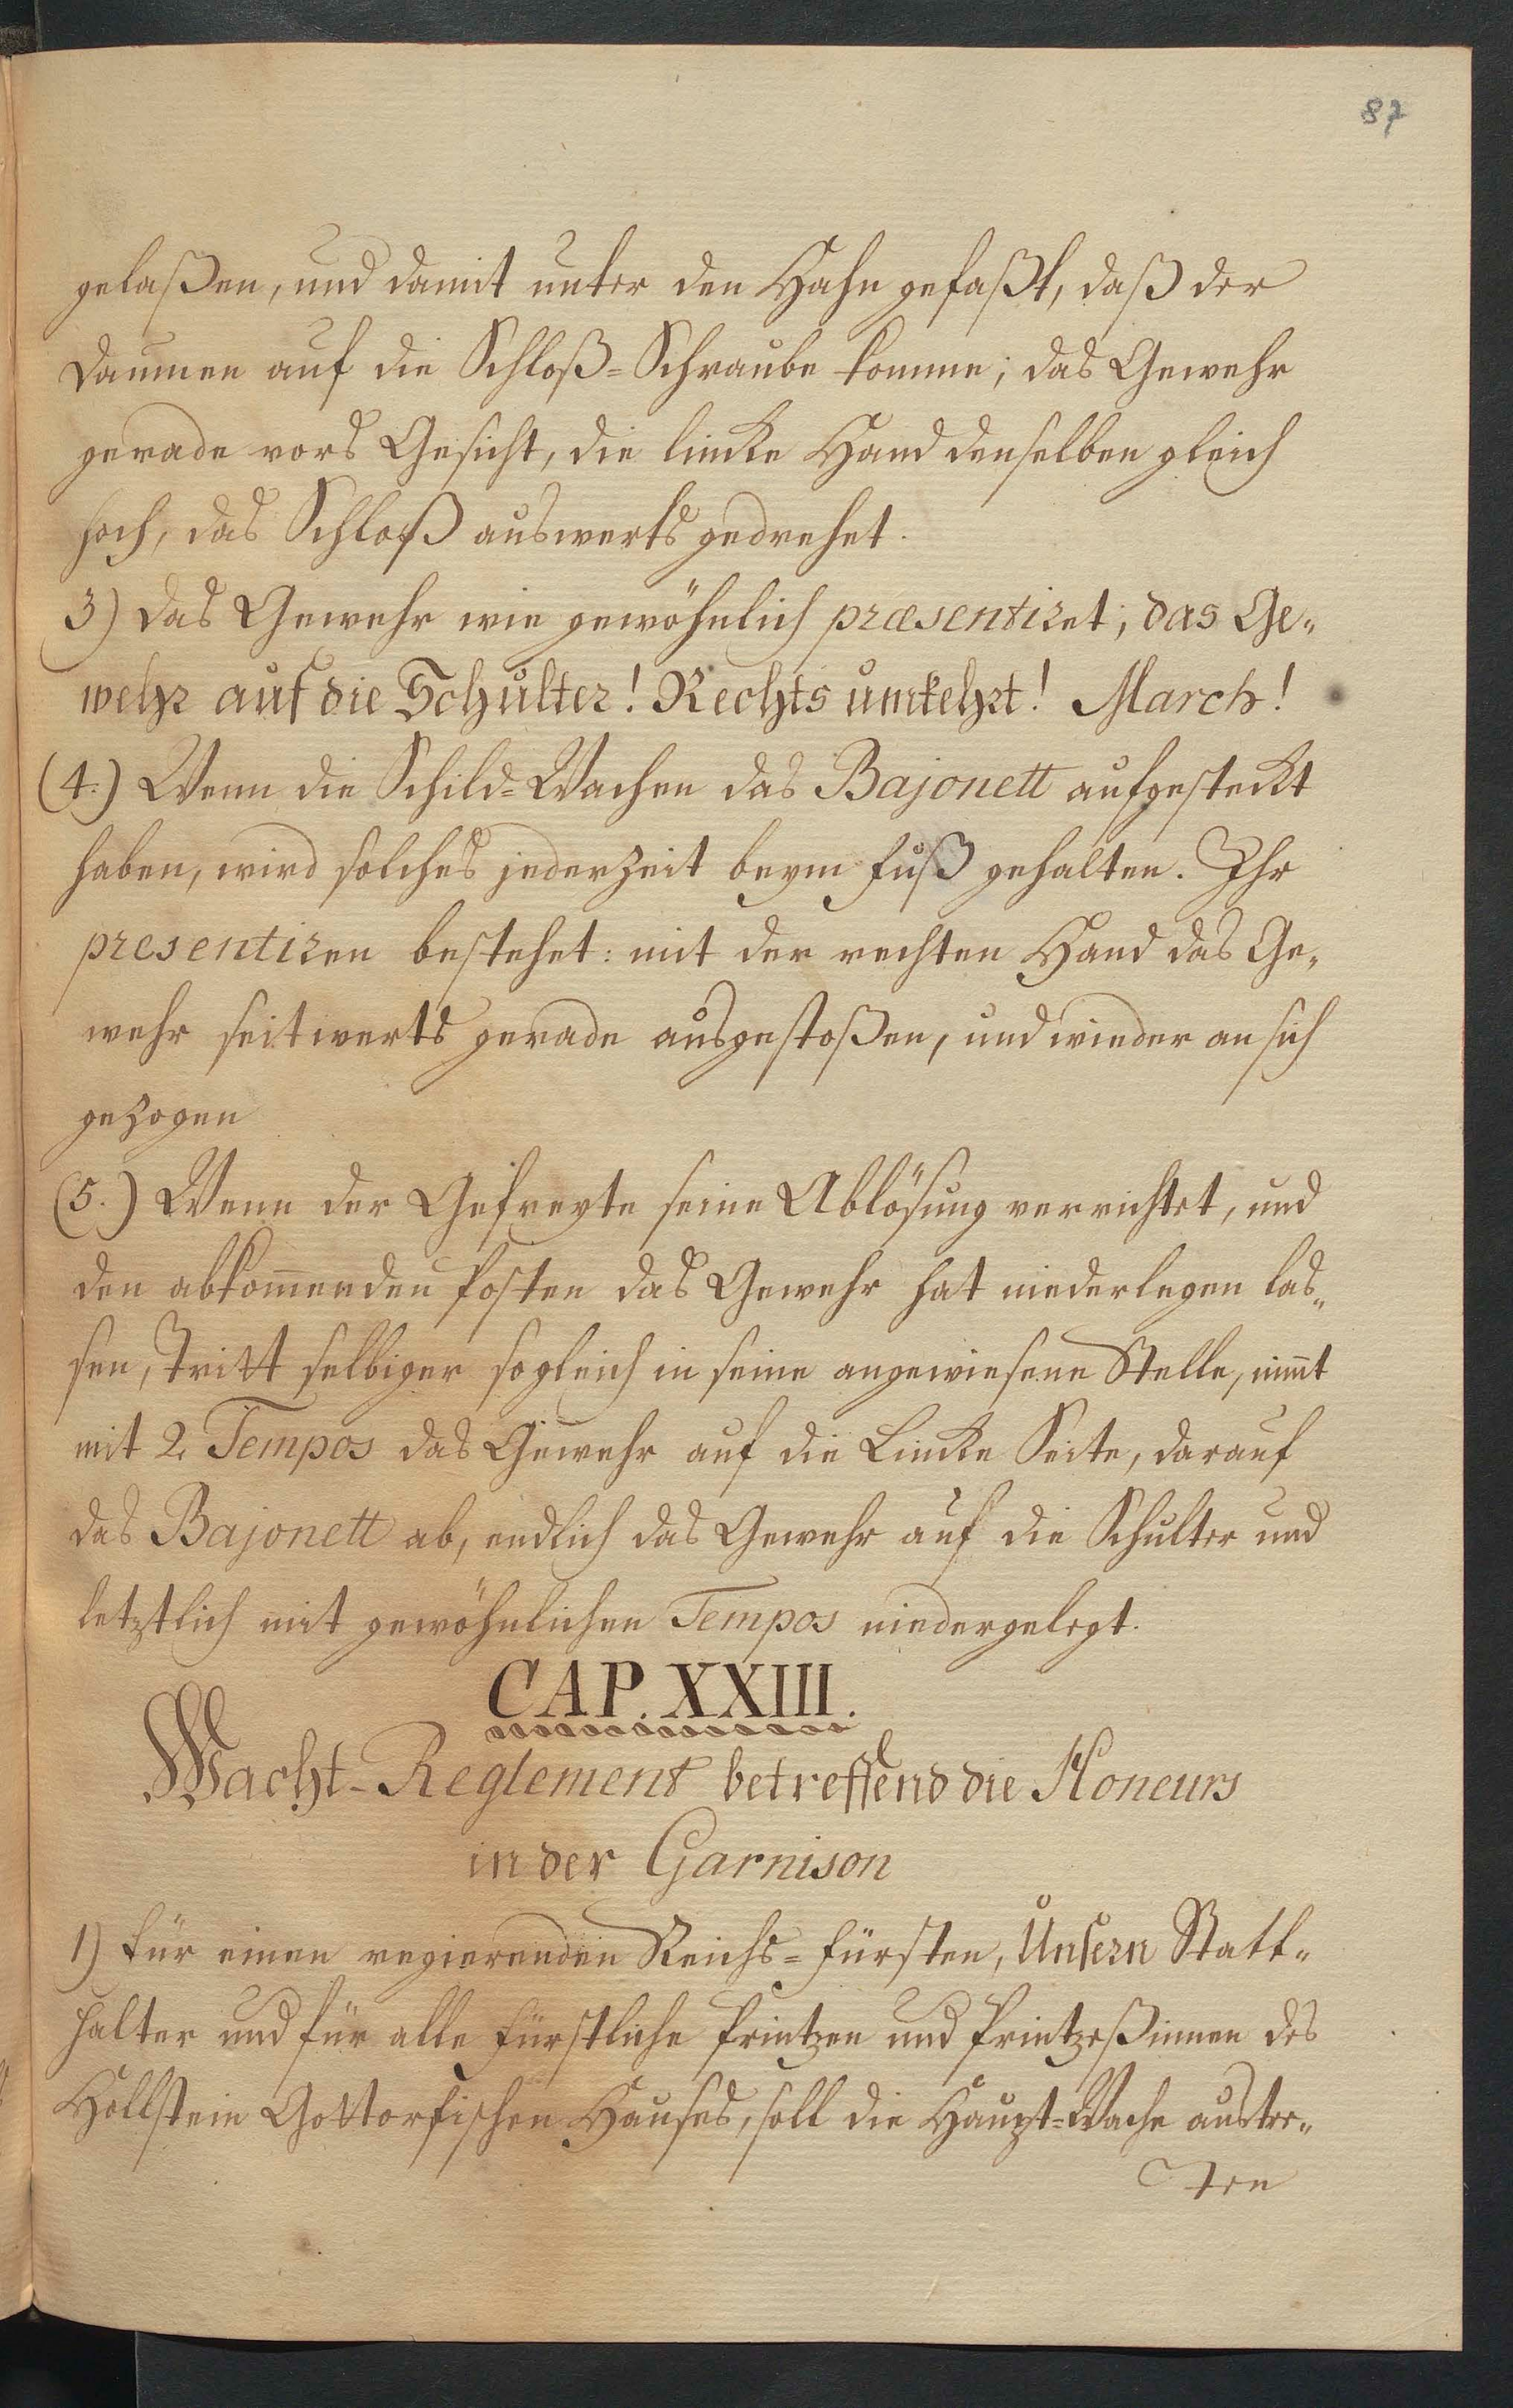 87
gelaßen, und damit unter den Hahn gefaßt, daß der
Daumen auf die Schloß=Schraube komme; das Gewehr
gerade vors Gesicht, die lincke Hand denselben gleich
hoch, das Schloß auswerts gedrehet.
3) Das Gewehr wie gewöhnlich præsentiret; das Ge„
wehr auf die Schulter! Rechts umkehrt! March!
(4.) Wenn die Schild=Wachen das Bajonett aufgesteckt
haben, wird solches jederzeit beym Fuß gehalten. Ihr
presentiren bestehet: mit der rechten Hand das Ge„
wehr seitwerts gerade ausgestoßen, und wieder an sich
gezogen
(5.) Wenn der Gefreyte seine Ablösung verrichtet, und
den abkom̄enden Posten das Gewehr hat niederlegen las„
sen, Tritt selbiger sogleich in seine angewiesene Stelle, nim̄t
mit 2. Tempos das Gewehr auf die Lincke Seite, darauf
das Bajonett ab, endlich das Gewehr auf die Schulter und
letztlich mit gewöhnlichen Tempos niedergelegt.
CAP. XXIII.
Wacht-Reglement betreffend die Honeurs
in der Garnison
1) Für einen regierenden Reichs=Fürsten, Unsern Statt„
halter und für alle Fürstliche Printzen und Printzeßinnen des
Hollstein Gottorfischen Hauses, soll die Haupt=Wache austre„
ten